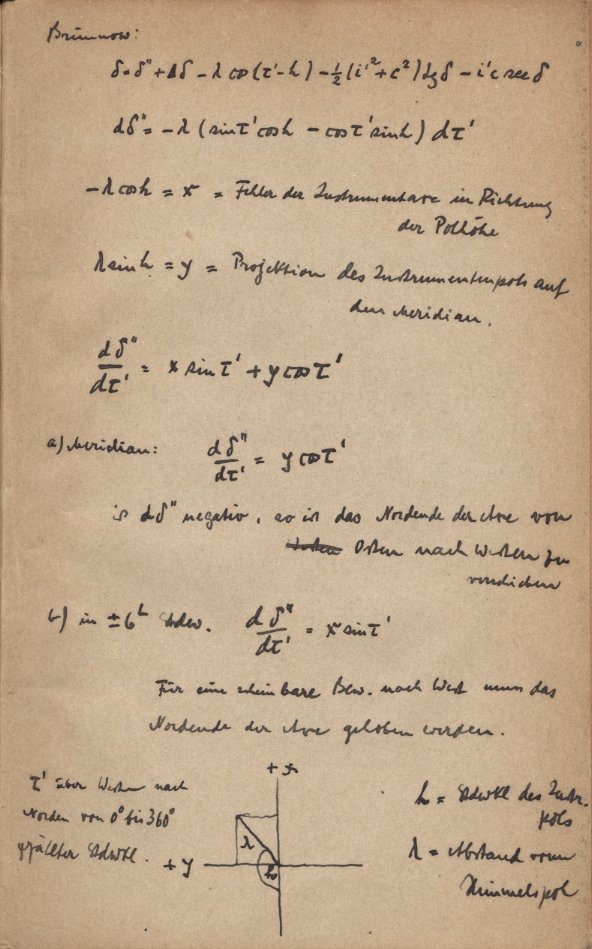 Brünnow:
δ = δ" + Δδ - λ cos (τ' - h) - ½ (i'² + c²) tg δ - i'c sec δ
dδ" = - λ (sin τ' cos h - cos τ' sin h) dτ'
- λ cos h = x = Fehler der Instrumentaxe in Richtung
der Polhöhe
λ sin h = y = Projektion des Instrumentenpols auf
den Meridian.
dδ"/dτ' = x sin τ' + y cos τ'
a) Meridian: dδ"/dτ' = y cos τ'
is dδ" negativ, so ist das Nordende der Axe von
Osten nach Westen zu
verschieben
b) in ± 6ʰ Stdw. dδ"/dτ' = x sin τ'
Für eine scheinbare Bew. nach West muss das
Nordende der Axe gehoben werden.
+ x
τ' über Westen nach
Norden von 0° bis 360°
gezählter Stdwkl.
+ y
λ
h
h = Stdwkl des Instr.
pols
λ = Abstand vom
Himmelspol